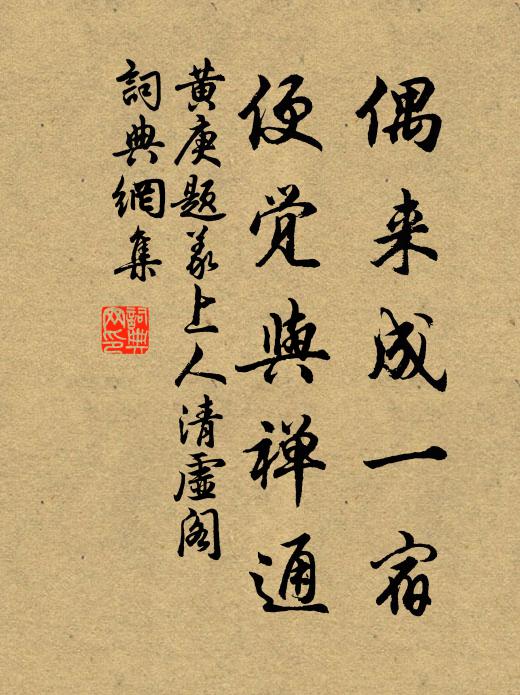 偶来成一宿
便覚與禅通
黄庚题義上人清虚阁
詞典網集
詞典
网印